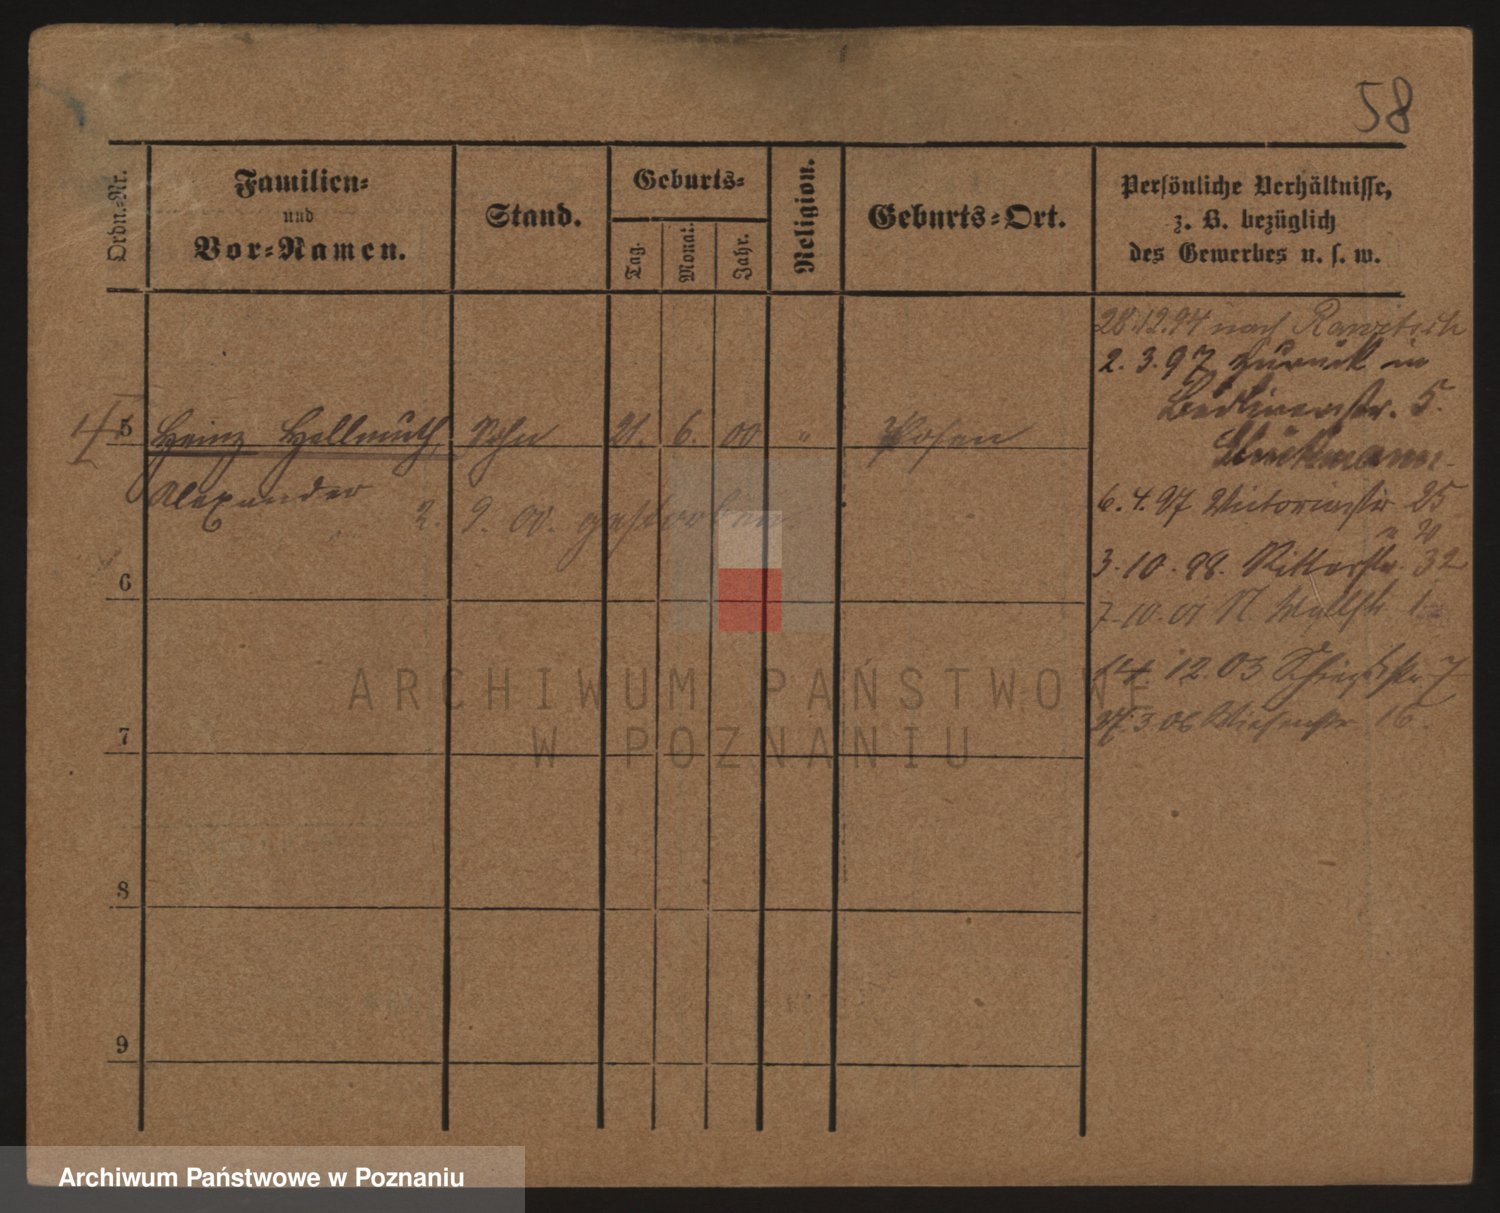 58
Ordn.-Nr.
Familien-
und
Vor-Namen.
Stand.
Geburts-
Tag.
Monat.
Jahr.
Religion.
Geburts-Ort.
Persönliche Verhältnisse,
z. B. bezüglich
des Gewerbes u. s. w.
28.12.94 nach Rawitsch
2. 3. 97 zurück in
Berlinerstr. 5.
5 Heinz Hellmuth, Sohn 21. 6. 00 " Posen
Alexander
2. 9. 00. gestorben
6. 4. 97 Victoriastr 25
3. 10. 98. Ritterstr. 32
7. 10. 01 N. Wallstr. 1
14. 12. 03 7
27.3.06 Wiesenstr 16.
6
7
8
9
ARCHIWUM PAŃSTWOWE
W POZNANIU
Archiwum Państwowe w Poznaniu